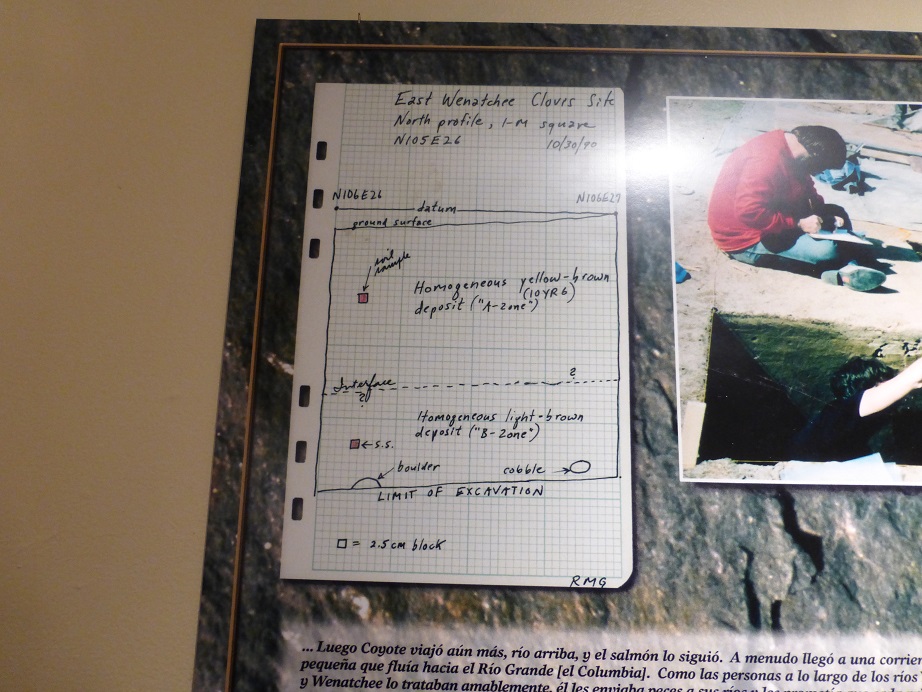 East Wenatchee Clovis Site
North profile, 1-M square
N105E26 10/30/90
N106E26 N106E27
datum
ground surface
soil
sample
Homogeneous yellow-brown
(10YR6)
deposit ("A-zone")
Interface
? ?
Homogeneous light-brown
deposit ("B-zone")
←s.s.
boulder cobble
LIMIT OF EXCAVATION
= 2.5 cm block
RMG
... Luego Coyote viajó aún más, río arriba, y el salmón lo siguió. A menudo llegó a una
pequeña que fluía hacia el Río Grande [el Columbia]. Como las personas a lo largo de los ríos
y Wenatchee lo trataban amablemente, él les enviaba peces a sus